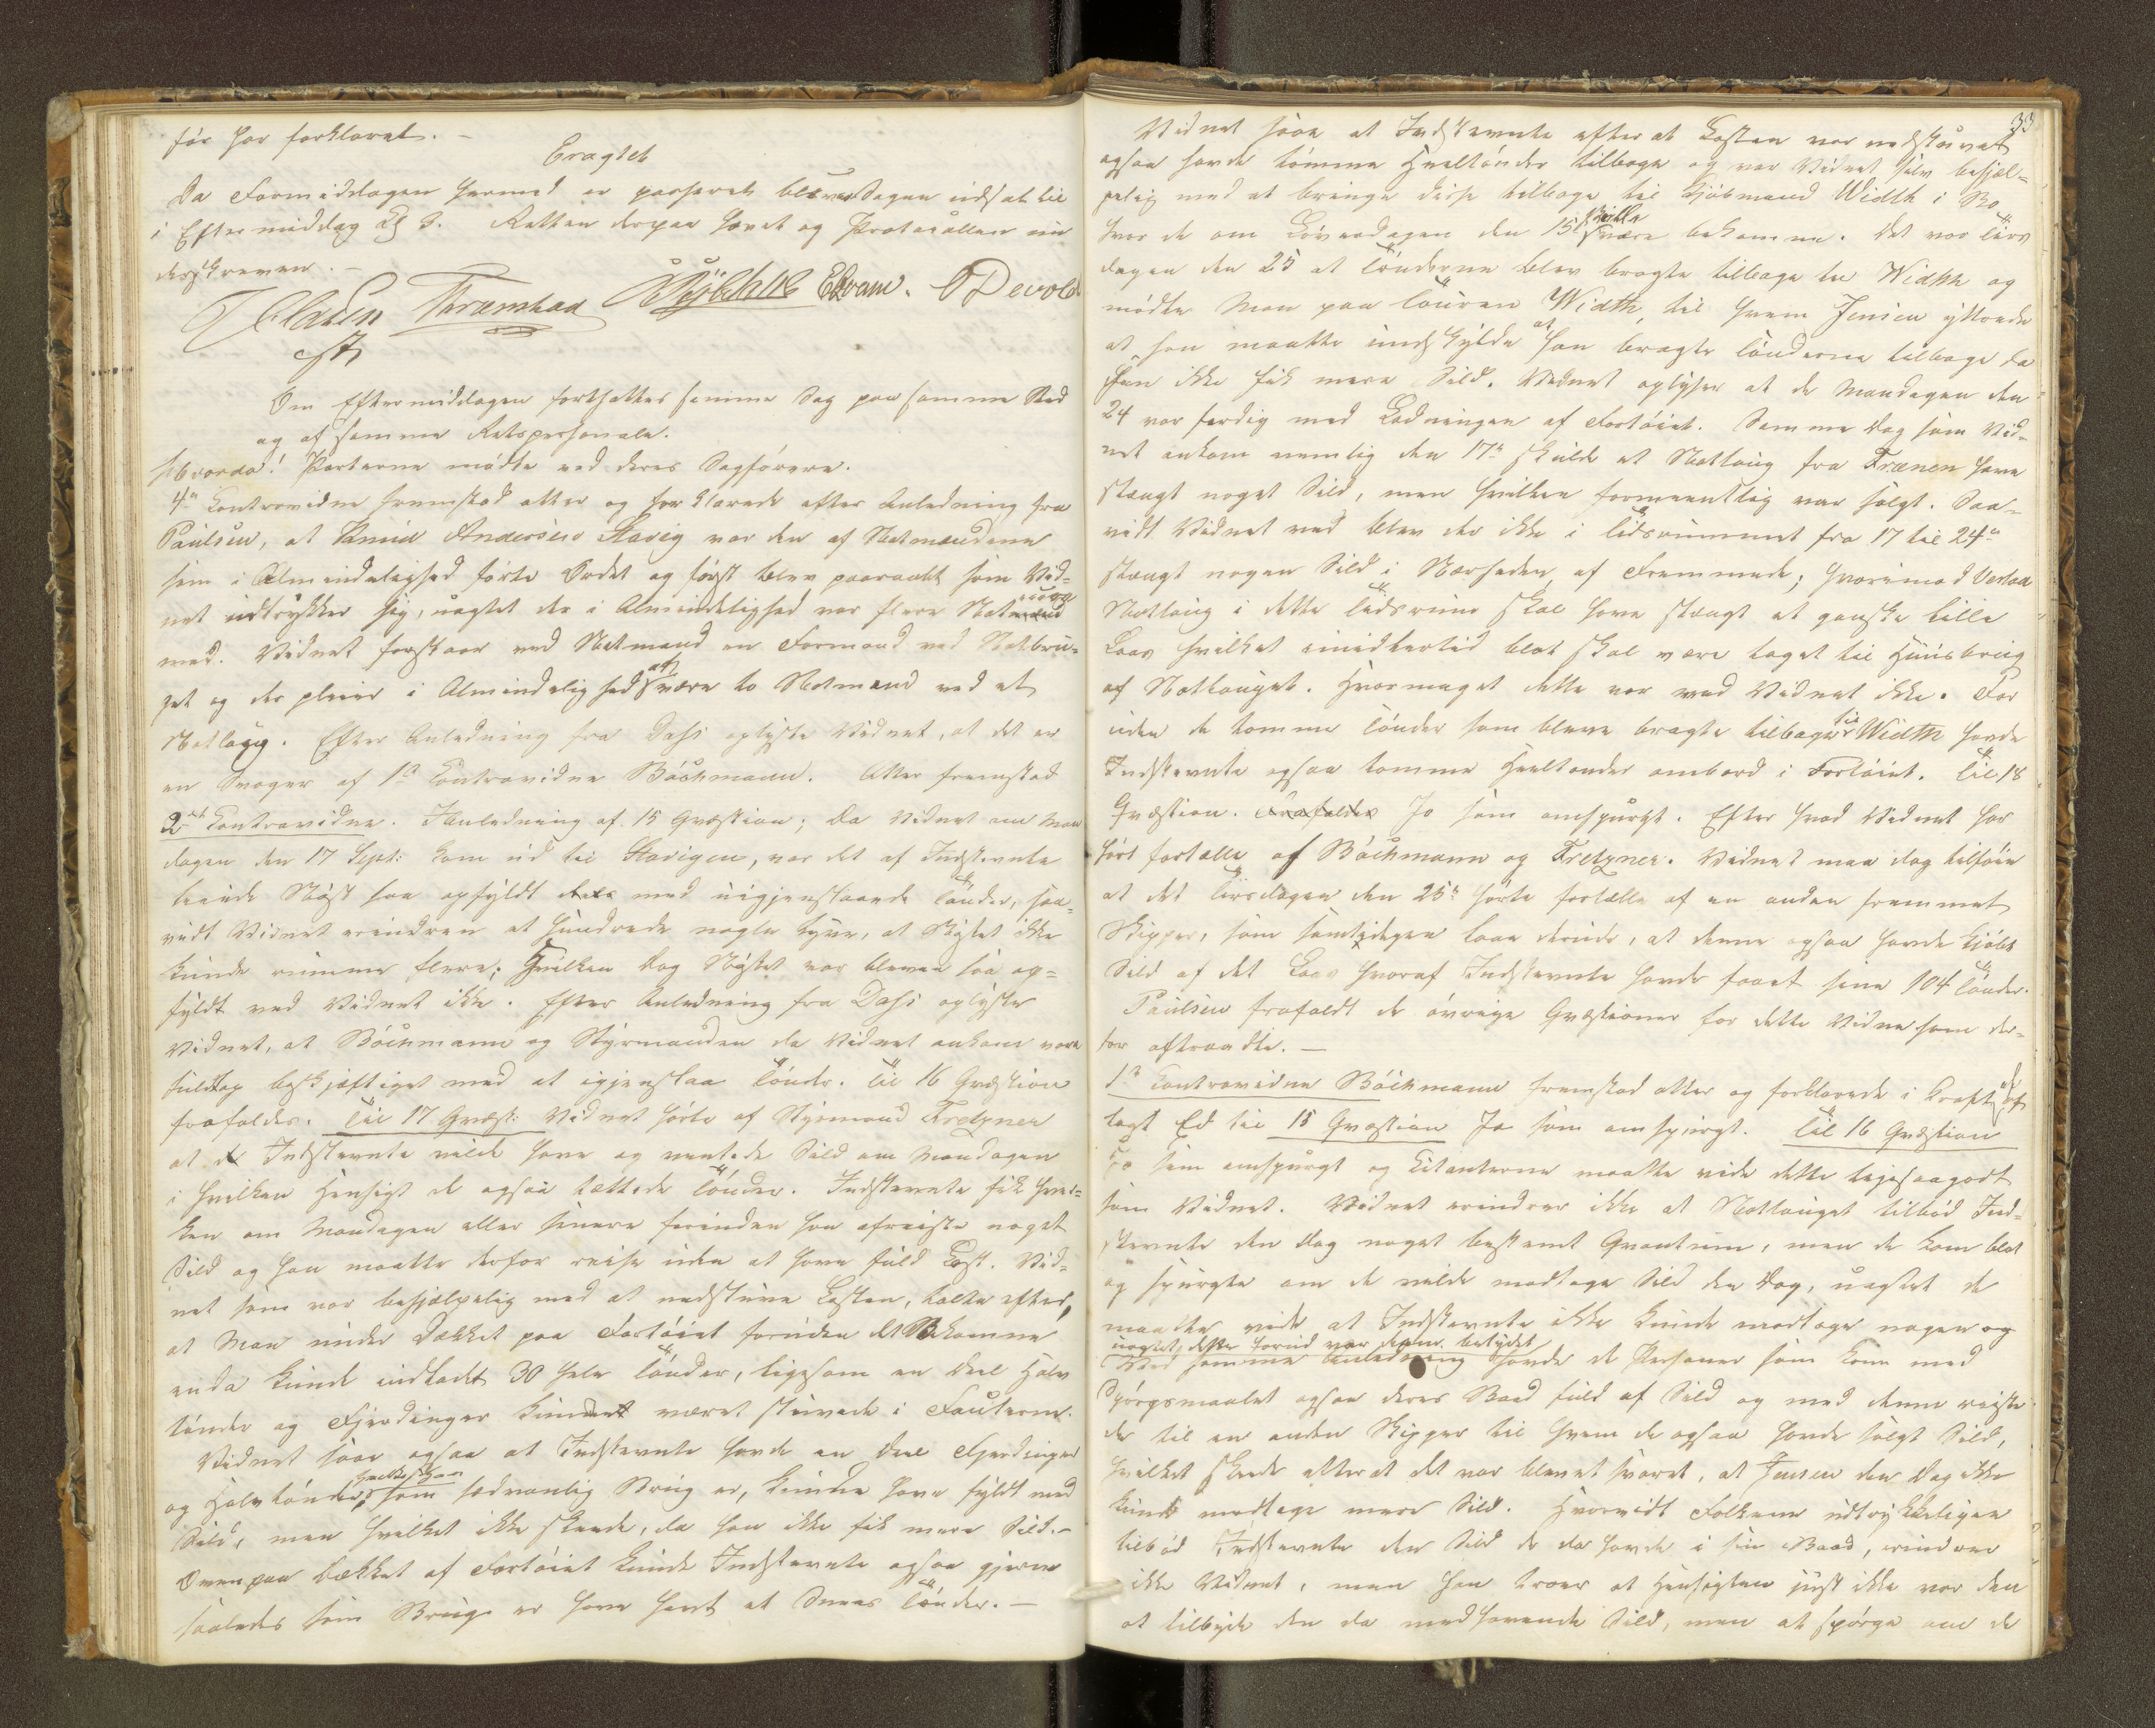 før har forklaret. –
Eragtet
Da Formiddagen hermed er passeret blev Sagen udsat til
i Eftermiddag Kl 3. Retten derpaa hævet og Protocollen un
derskreven. –
Om Eftermiddagen fortsattes samme Sag paa samme Sted
og af samme Retspersonale.
Hvorda! Parterne mødte ved deres Sagførere.
4de Contravidne fremstod atter og forklarede efter Anledning fra
Paulsen, at Knud Andersen Stavig var den af Notmændene
som i Almindelighed førte Ordet og først blev paaraabt som Vid=
net udtrykker sig, uagtet der i Almindelighed var flere Notmænd
med. Vidnet forstaar ved Notmand en Formand ved Notbru=
get og der pleier i Almindelighed at være to Notmænd ved et
Notlaug. Efter Anledning fra Dahl oplyste Vidnet, at det er
en Svoger af 1ste Contravidne Böckmann. Atter fremstod
2det Contravidne. I Anledning af 15 Qvæstion; Da Vidnet om Man
dagen den 17 Sept: kom ud til Stavigen, var det af Indstevnte
leiede Nøst saa opfyldt med uigjenslaaede Tønder, saa=
vidt Vidnet erindrer et hundrede nogle tyve, at Nøstet ikke
kunde rumme flere; Hvilken Dag Nøstet var bleven saa op=
fyldt ved Vidnet ikke. Efter Anledning fra Dahl oplyste
Vidnet, at Böckmann og Styrmanden da Vidnet ankom vare
fuldtop beskjæftiget med at igjenslaa Tønder. Til 16 Qvæstion
frafaldes. Til 17 Qvæst: Vidnet hørte af Styrmand Fretzner
at Indstevnte vilde have og ventede Sild om Mandagen
i hvilken Hensigt de ogsaa tættede Tønder. Indstevnte fik hver=
ken om Mandagen eller senere forinden han afreiste noget
Sild og han maatte derfor reise uden at have fuld Last. Vid=
net som var behjælpelig med at nedstuve Lasten, talte efter,
at Man under Dækket paa Fartøiet foruden det Bekomne
enda kunde indladt 30 hele Tønder, ligesom en Deel Halv
tønder og Fjerdinger kundet været stuvede i
Vidnet saae ogsaa at Indstevnte havde en Deel Fjerdinger
og Halvtønder, hvilke han som sædvanlig Brug er, kunde have fyldt med
Sild, men hvilket ikke skeede, da han ikke fik mere Sild. –
Ovenpaa Dækket af Fartøiet kunde Indstevnte ogsaa gjerne
saaledes som Brug er have havt et Snees Tønder. –
33
Vidnet saae at Indstevnte efter at Lasten var nedstuvet
ogsaa havde tomme Heeltønder tilbage og var Vidnet selv behjæl=
pelig med at bringe disse tilbage til Kjøbmand Width i Bo
hvor de om Løverdagen den 15de skulle være bekomne. Det var Tirs
dagen den 25 at Tønderne blev bragte tilbage til Width og
mødte Man paa Touren Width, til hvem Jensen yttrede
at han maatte undskylde at han bragte Tønderne tilbage da
han ikke fik mere Sild. Vidnet oplyser at de Mandagen den
24 var færdig med Ladningen af Fartøiet. Samme Dag som Vid=
net ankom nemlig den 17de skulde et Notlaug fra Frænen have
stængt noget Sild, men hvilken formeentlig var solgt. Saa=
vidt Vidnet ved blev der ikke i Tidsrummet fra 17 til 24de
stængt nogen Sild i Nærheden af Fremmede; hvorimod Verlaa
Notlaug i dette Tidsrum skal have stængt et ganske lille
Laas hvilket imidlertid blot skal være taget til Huusbrug
af Notlauget. Hvormeget dette var ved Vidnet ikke. For
uden de tomme Tønder som bleve bragte tilbage til Width havde
Indstevnte ogsaa tomme Heeltønder ombord i Fartøiet. Til 18
Qvæstion. Frafaldes Jo som omspurgt. Efter hvad Vidnet har
hørt fortælle af Böckmann og Fretzner. Vidnet maa dog tilføie
at det Tirsdagen den 25de hørte fortælle af en anden fremmet
Skipper, som samtidigen laae derude, at denne ogsaa havde kjøbt
Sild af det Laas hvoraf Indstevnte havde faaet sine 104 Tønder.
Paulsen frafaldt de øvrige Qvæstioner for dette Vidne som der=
for aftraadte. –
1ste Contravidne Böckmann fremstod atter og forklarede i Kraft af
lagt Ed til 15 Qvæstion Ja som omspurgt. Til 16 Qvæstion
Jo som omspurgt og Citanterne maatte vide dette ligesaagodt
som Vidnet. Vidnet erindrer ikke at Notlauget tilbød Ind=
stevnte den Dag noget bestemt Qvantum, men de kom blot
og spurgte om de vilde modtage Sild den Dag, uagtet de
maatte vide at Indstevnte ikke kunde modtage nogen og
uagtet dette forud var dem betydet
Ved samme Anledning havde de Personer som kom med
Spørgsmaalet ogsaa deres Baad fuld af Sild og med denne reiste
de til en anden Skipper til hvem de ogsaa havde solgt Sild,
hvilket skeede efterat det var blevet svaret, at Jensen den Dag ikke
kunde modtage mere Sild. Hvorvidt Folkene udtrykkeligen
tilbød Indstevnte den Sild de da havde i sin Baad, erindrer
ikke Vidnet, men han troer at Hensigten just ikke var den
at tilbyde den da medhavende Sild, men at spørge om de